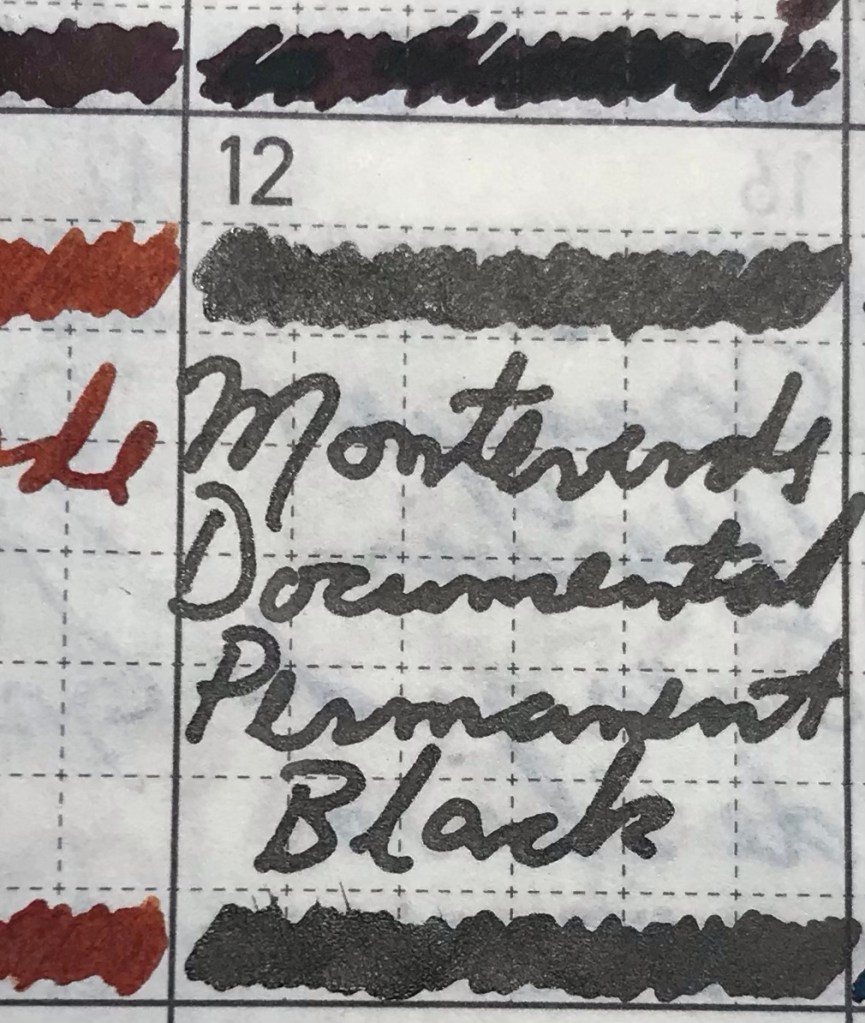 12
Monteverde
Documental
Permanent
Black